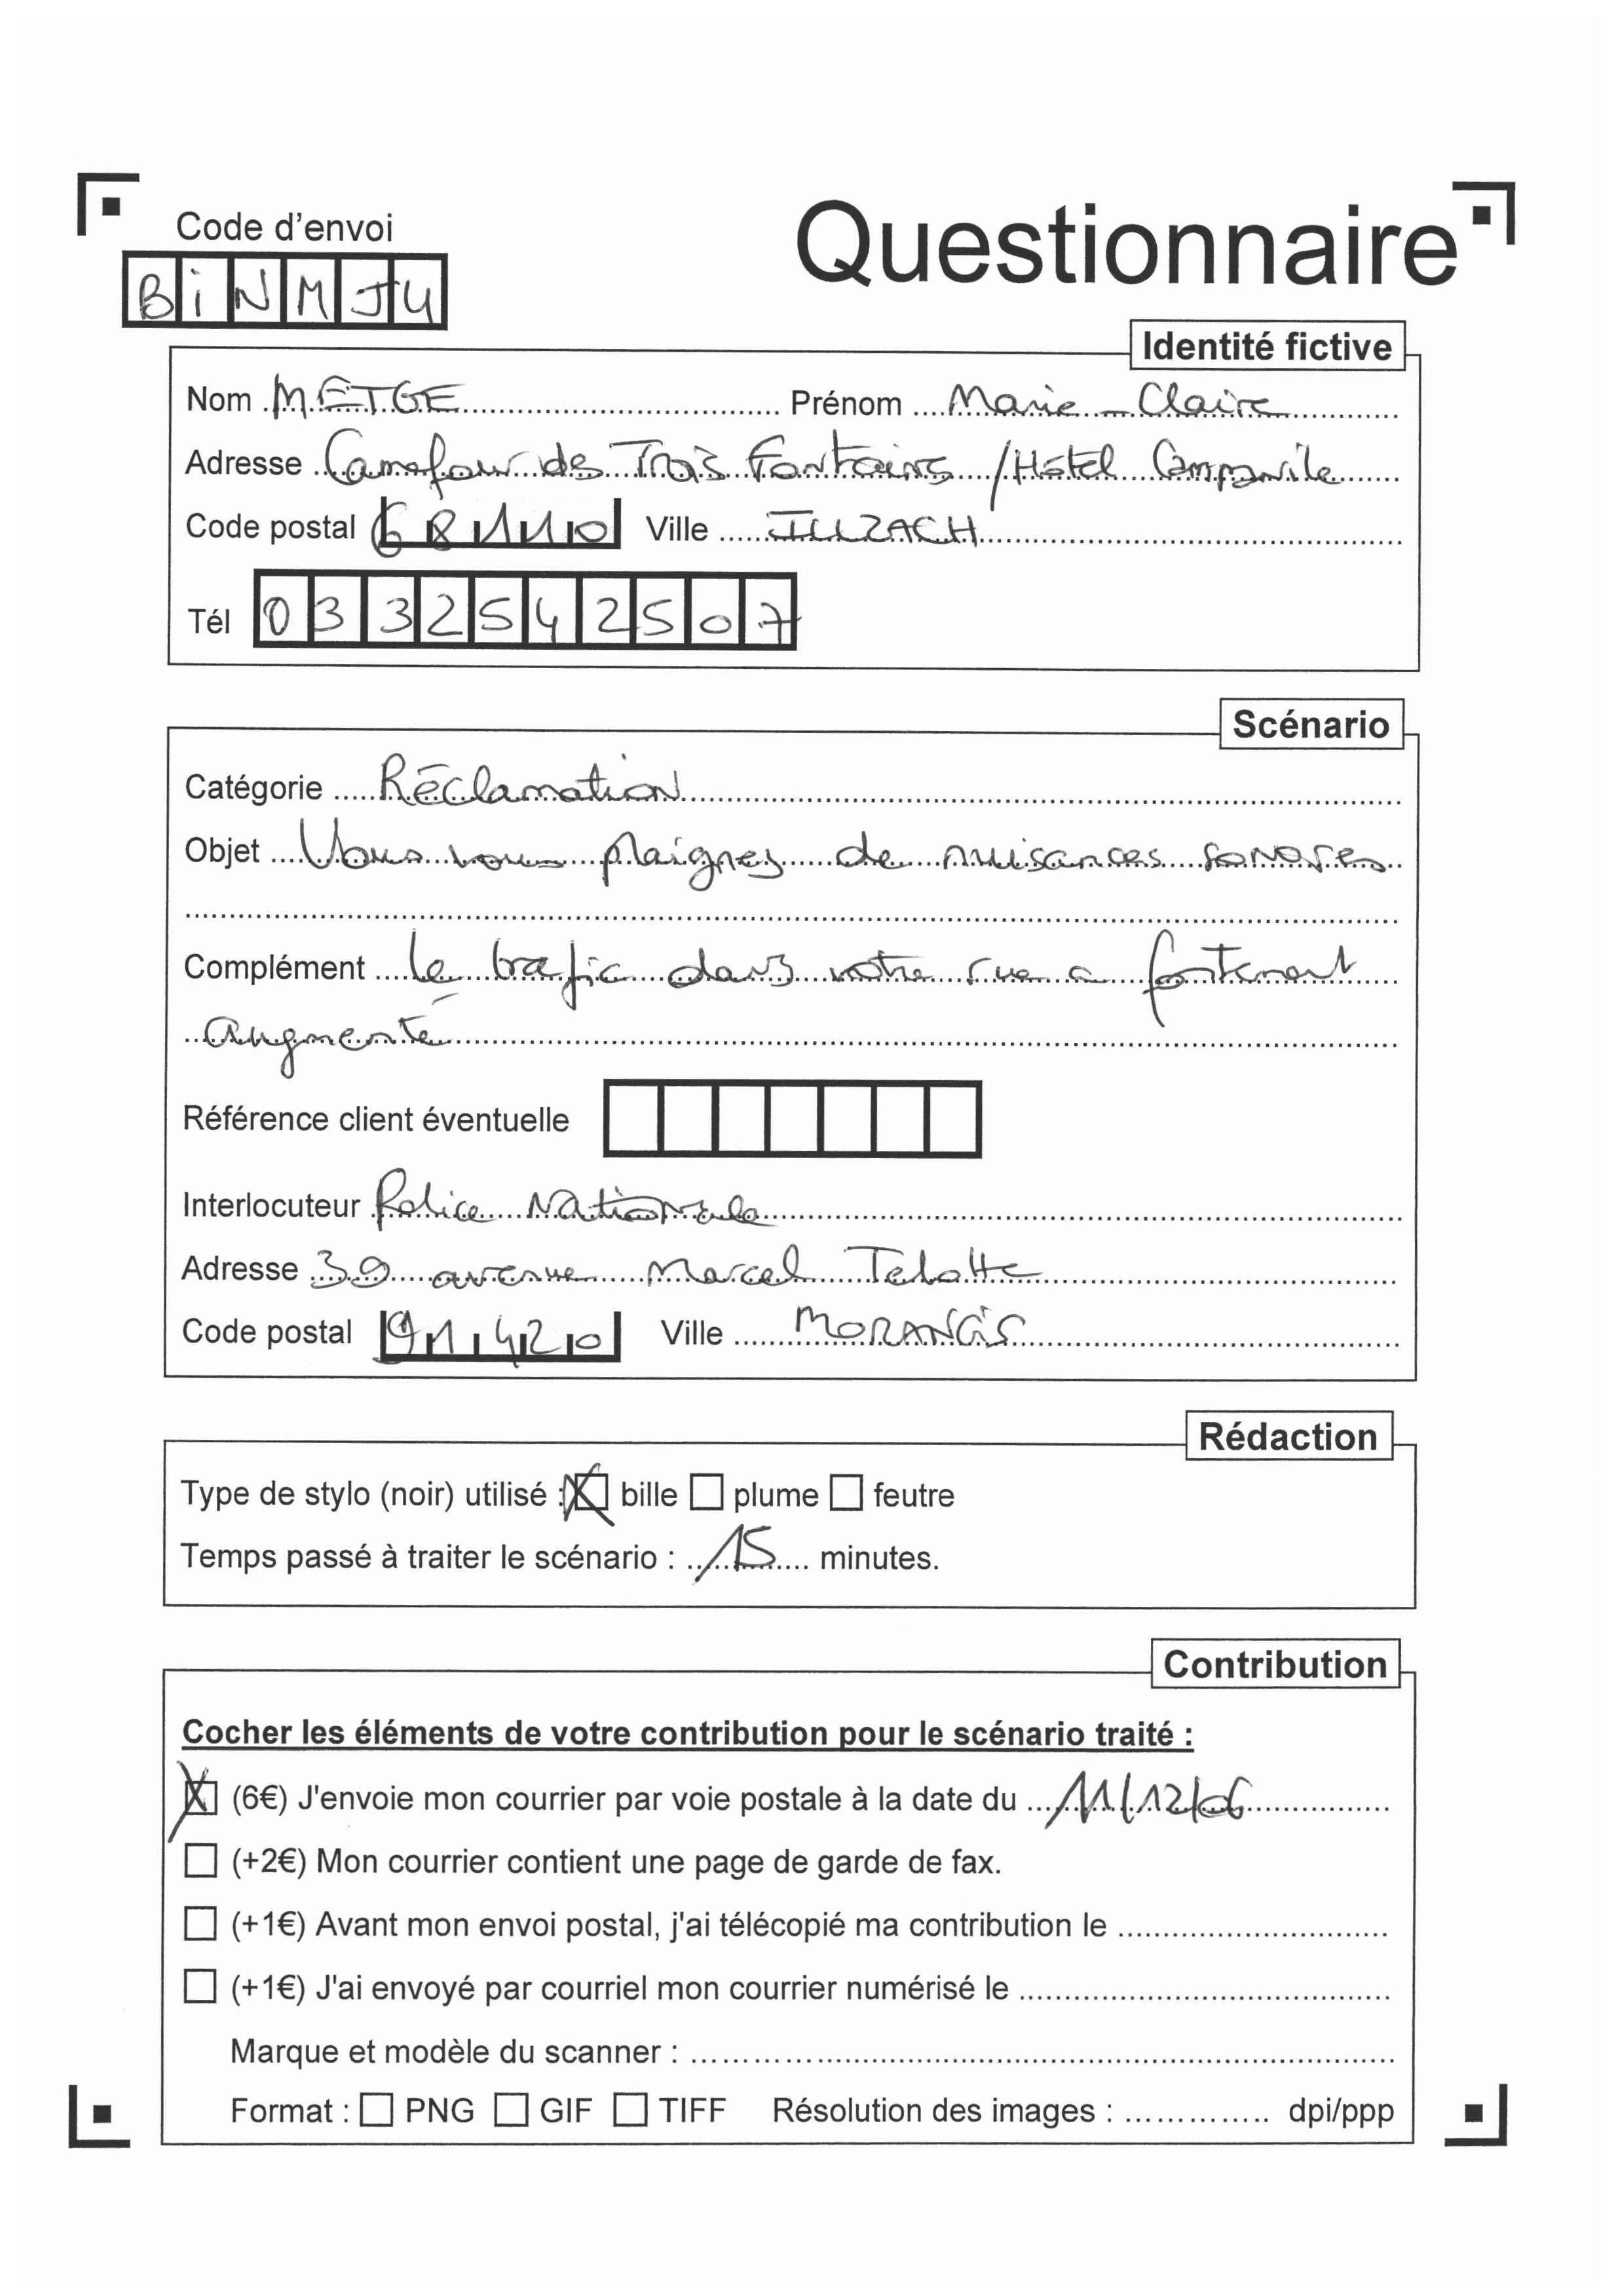 Code d'envoi
Questionnaire
BiNMJ4
Identité fictive
Nom METGE Prénom Marie-Claire
Adresse Carrefour des Trois Fontaines / Hôtel Campanile
Code postal 68110 Ville ILLZACH
Tél 0332542507
Scénario
Catégorie Réclamation
Objet Vous vous plaignez de nuisances sonores
Complément Le trafic dans votre rue a fortement
augmenté
Référence client éventuelle
Interlocuteur Police Nationale
Adresse 39 avenue Marcel
Code postal 91420 Ville MORANGIS
Rédaction
Type de stylo (noir) utilisé : bille plume feutre
Temps passé à traiter le scénario : 15 minutes.
Contribution
Cocher les éléments de votre contribution pour le scénario traité :
(6€) J'envoie mon courrier par voie postale à la date du 11/12/06
(+2€) Mon courrier contient une page de garde de fax.
(+1€) Avant mon envoi postal, j'ai télécopié ma contribution le
(+1€) J'ai envoyé par courriel mon courrier numérisé le
Marque et modèle du scanner :
Format : PNG GIF TIFF Résolution des images : dpi/ppp